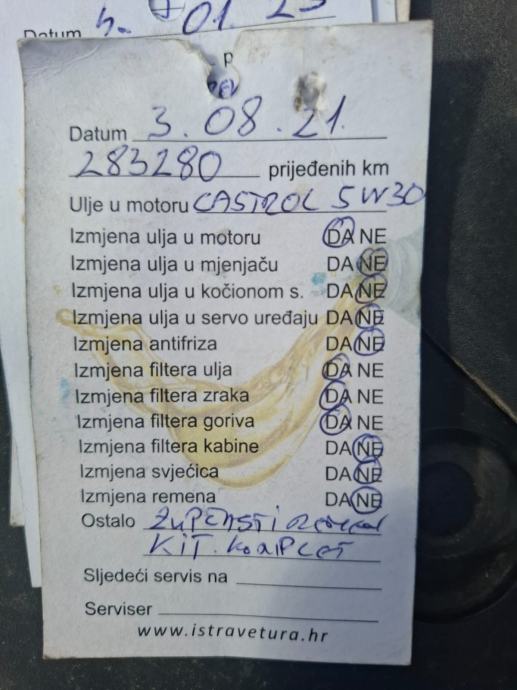 Datum
01
Datum 3.08.21.
283280 prijeđenih km
Ulje u motoru CASTROL 5W30
Izmjena ulja u motoru DA NE
Izmjena ulja u mjenjaču DA NE
Izmjena ulja u kočionom s. DA NE
Izmjena ulja u servo uređaju DA NE
Izmjena antifriza DA NE
Izmjena filtera ulja DA NE
Izmjena filtera zraka DA NE
Izmjena filtera goriva DA NE
Izmjena filtera kabine DA NE
Izmjena svjećica DA NE
Izmjena remena DA NE
Ostalo
KIT. KOMPLET
Sljedeći servis na
Serviser
www.istravetura.hr